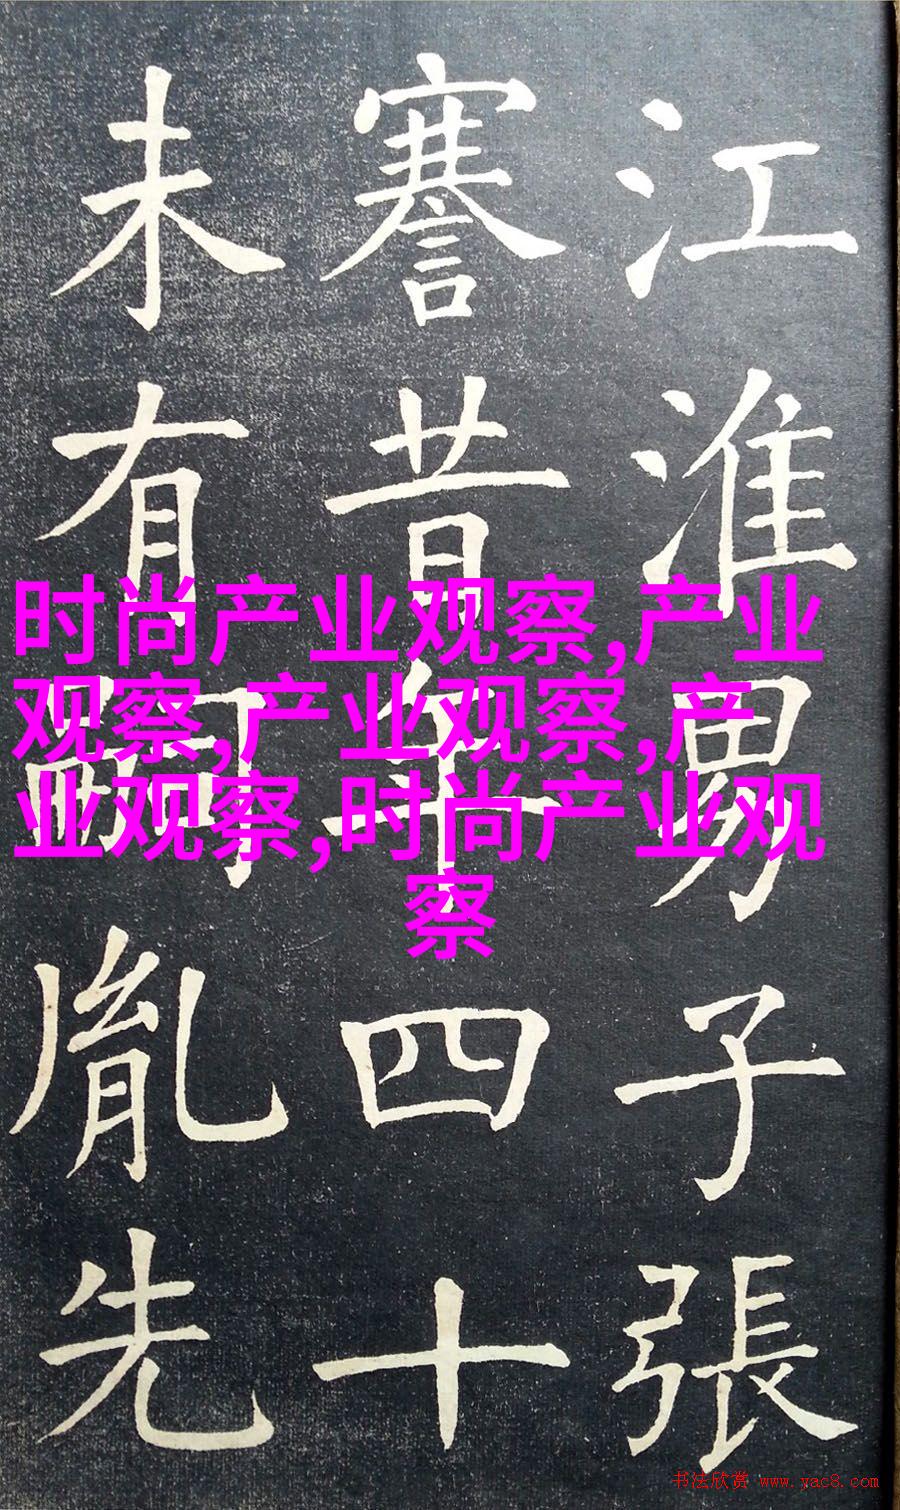 江淮男子張
謇昔年四十
未有嗣胤先
时尚产业观察,产业
观察,产业观察,产
业观察,时尚产业观
察
书法欣赏 www.yac8.com